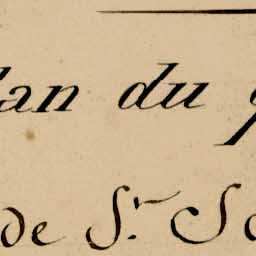 lan du
de Sr. S